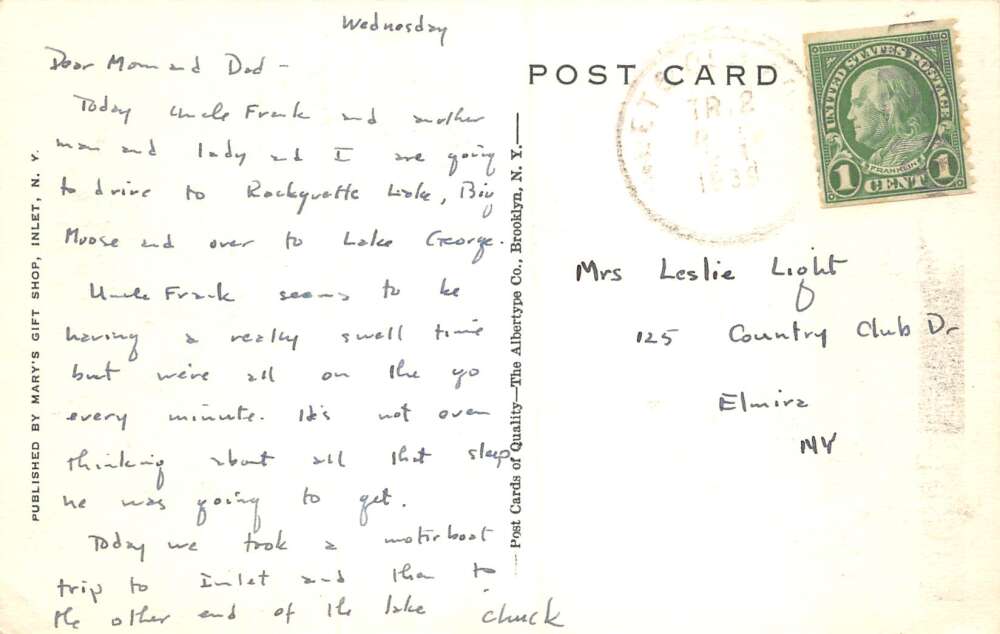 Wednesday
Dear Mom and Dad -
Today Uncle Frank and another
man and lady and I are going
to drive to Rackyuette Lake, Big
Moose and over to Lake George.
Uncle Frank seems to be
having a really swell time
but we're all on the go
every minute. It's not even
thinking about all that sleep
he was going to get.
Today we took a motorboat
trip to Inlet and then to
the other end of the lake
Chuck
PUBLISHED BY MARY'S GIFT SHOP, INLET, N. Y.
Post Cards of Quality—The Albertype Co., Brooklyn, N. Y.
POST CARD
UNITED STATES POSTAGE
FRANKLIN
1 CENT 1
Mrs Leslie Light
125 Country Club Dr
Elmira
NY